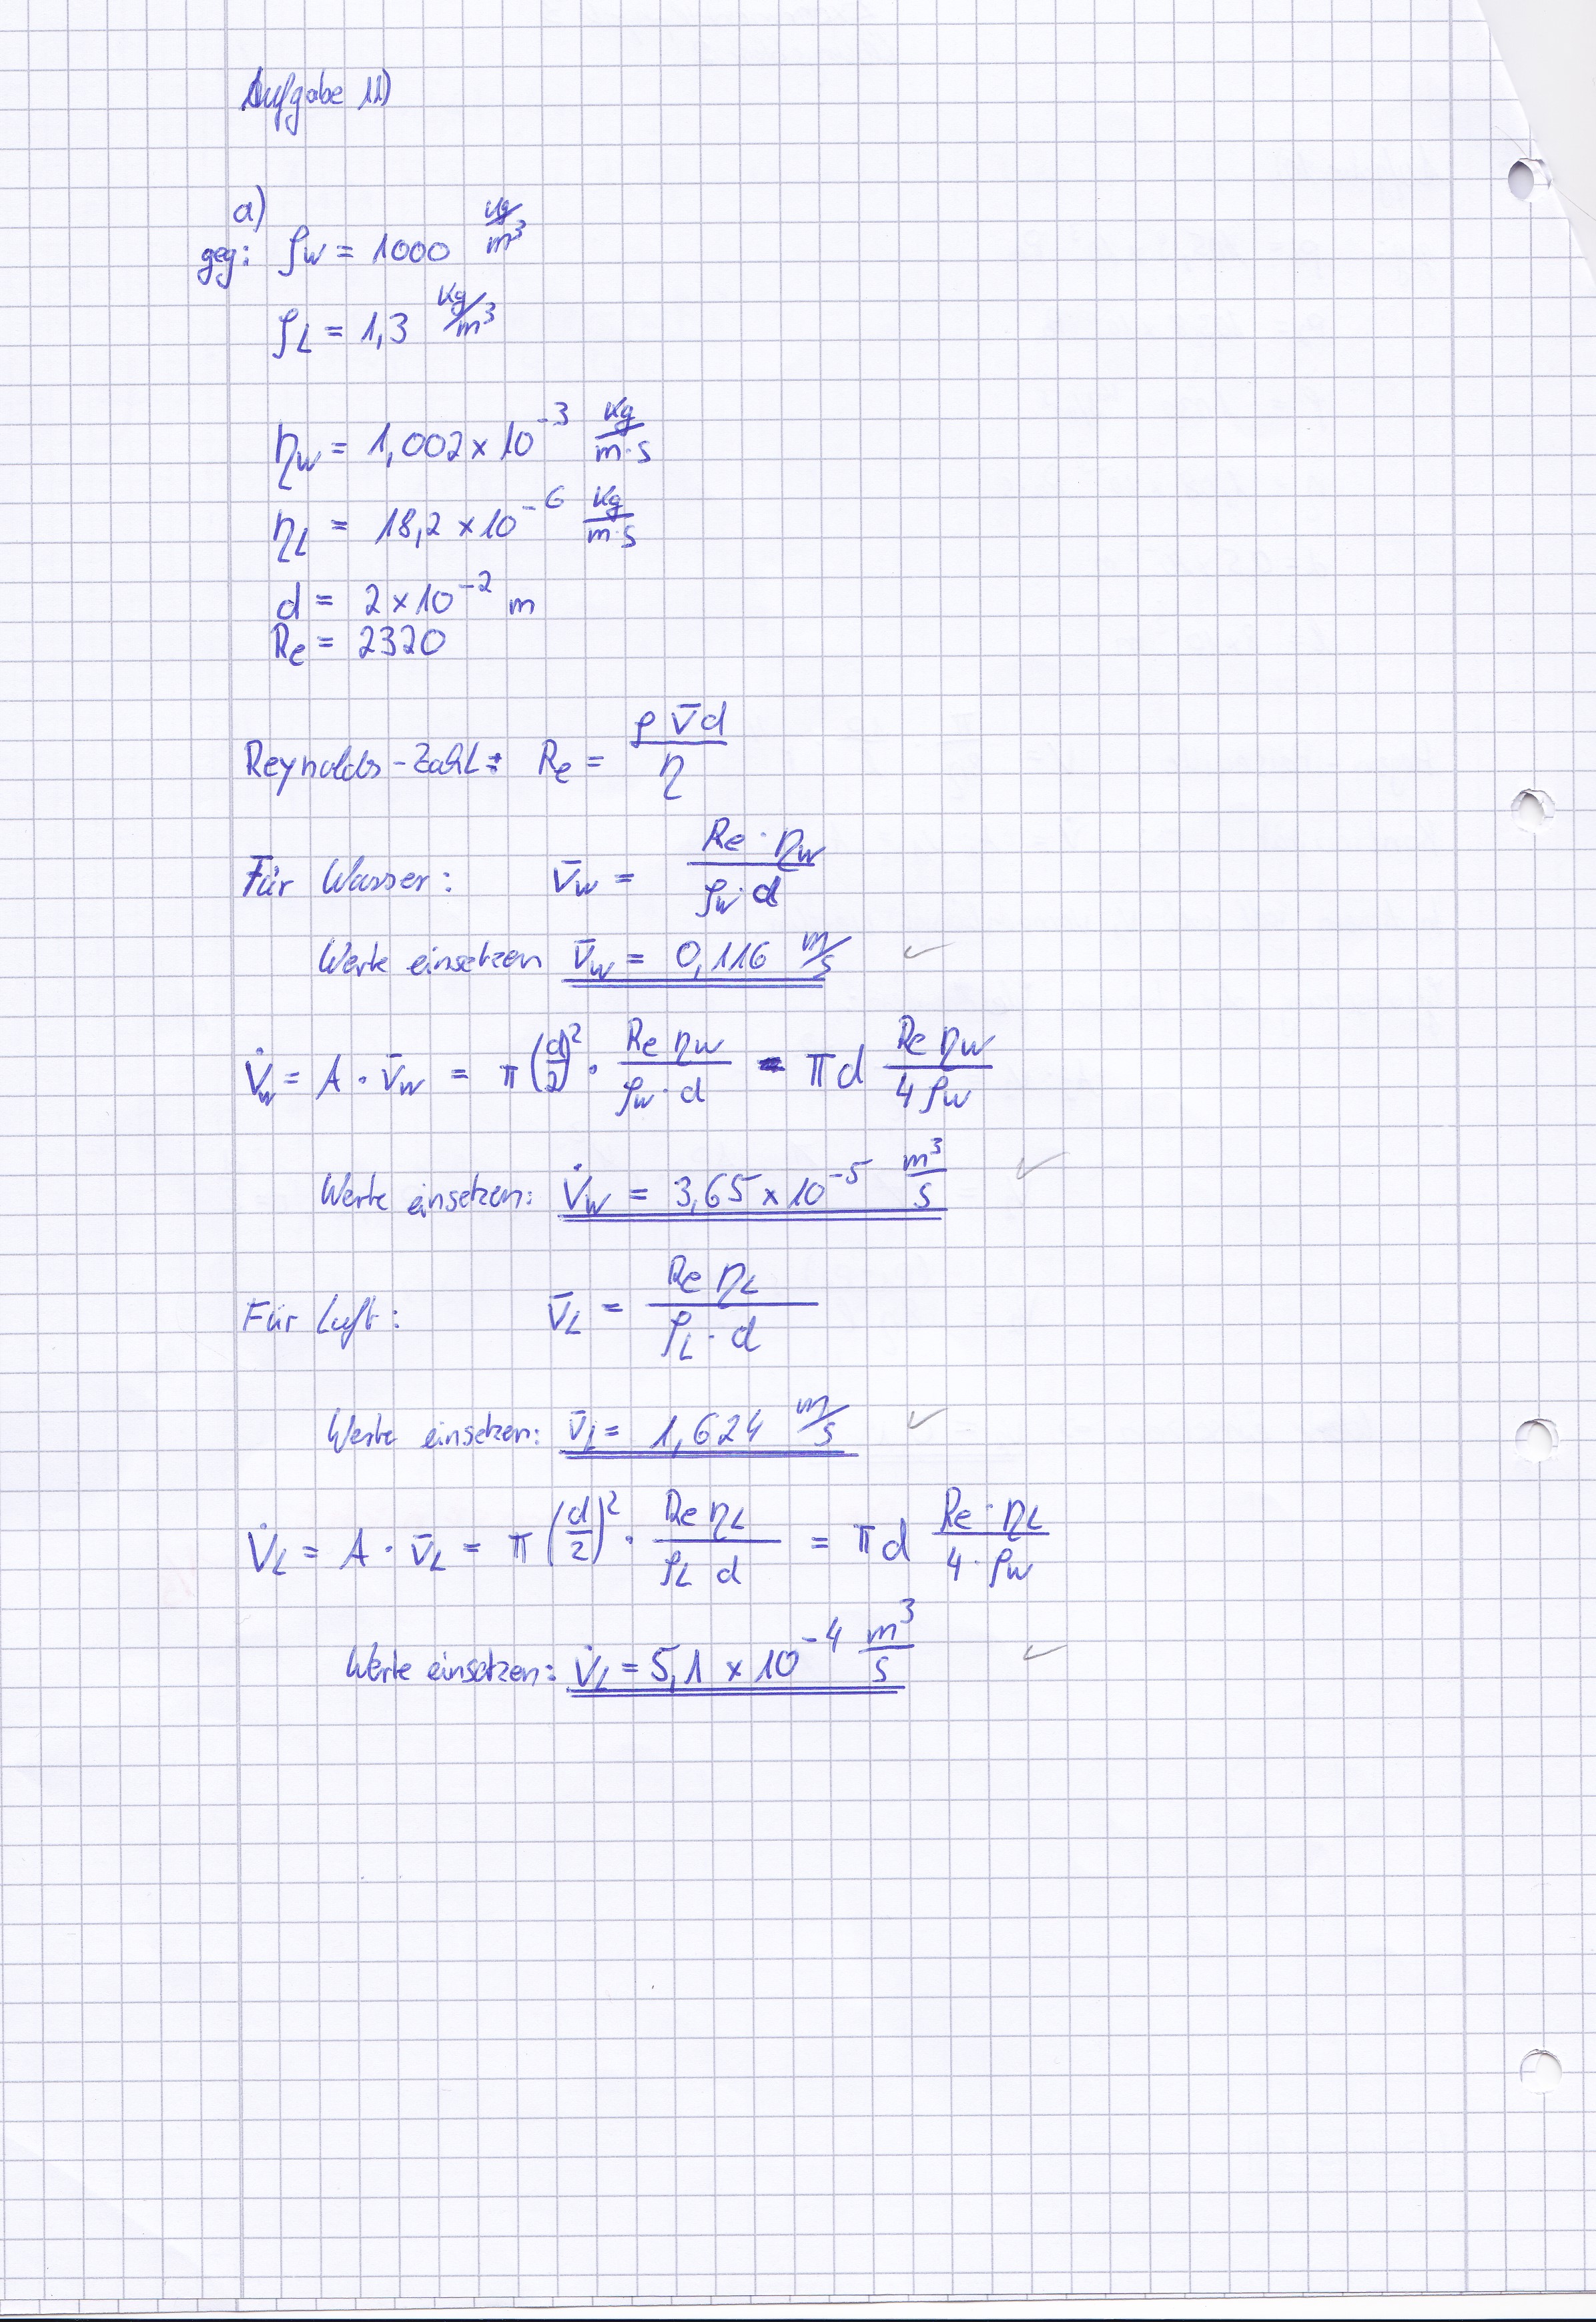 Aufgabe 11)
a)
geg: ρw = 1000 kg/m³
ρL = 1,3 kg/m³
ηw = 1,002 × 10⁻³ kg/m·s
ηL = 18,2 × 10⁻⁶ kg/m·s
d = 2 × 10⁻² m
Re = 2320
Reynolds-Zahl: Re = ρ v̄ d / η
Für Wasser: v̄w = Re · ηw / ρw · d
Werte einsetzen v̄w = 0,116 m/s ✓
V̇w = A · v̄w = π (d/2)² · Re ηw / ρw · d = π d Re ηw / 4 ρw
Werte einsetzen: V̇w = 3,65 × 10⁻⁵ m³/s ✓
Für Luft: v̄L = Re ηL / ρL · d
Werte einsetzen: v̄L = 1,624 m/s ✓
V̇L = A · v̄L = π (d/2)² · Re ηL / ρL d = π d Re · ηL / 4 · ρw
Werte einsetzen: V̇L = 5,1 × 10⁻⁴ m³/s ✓